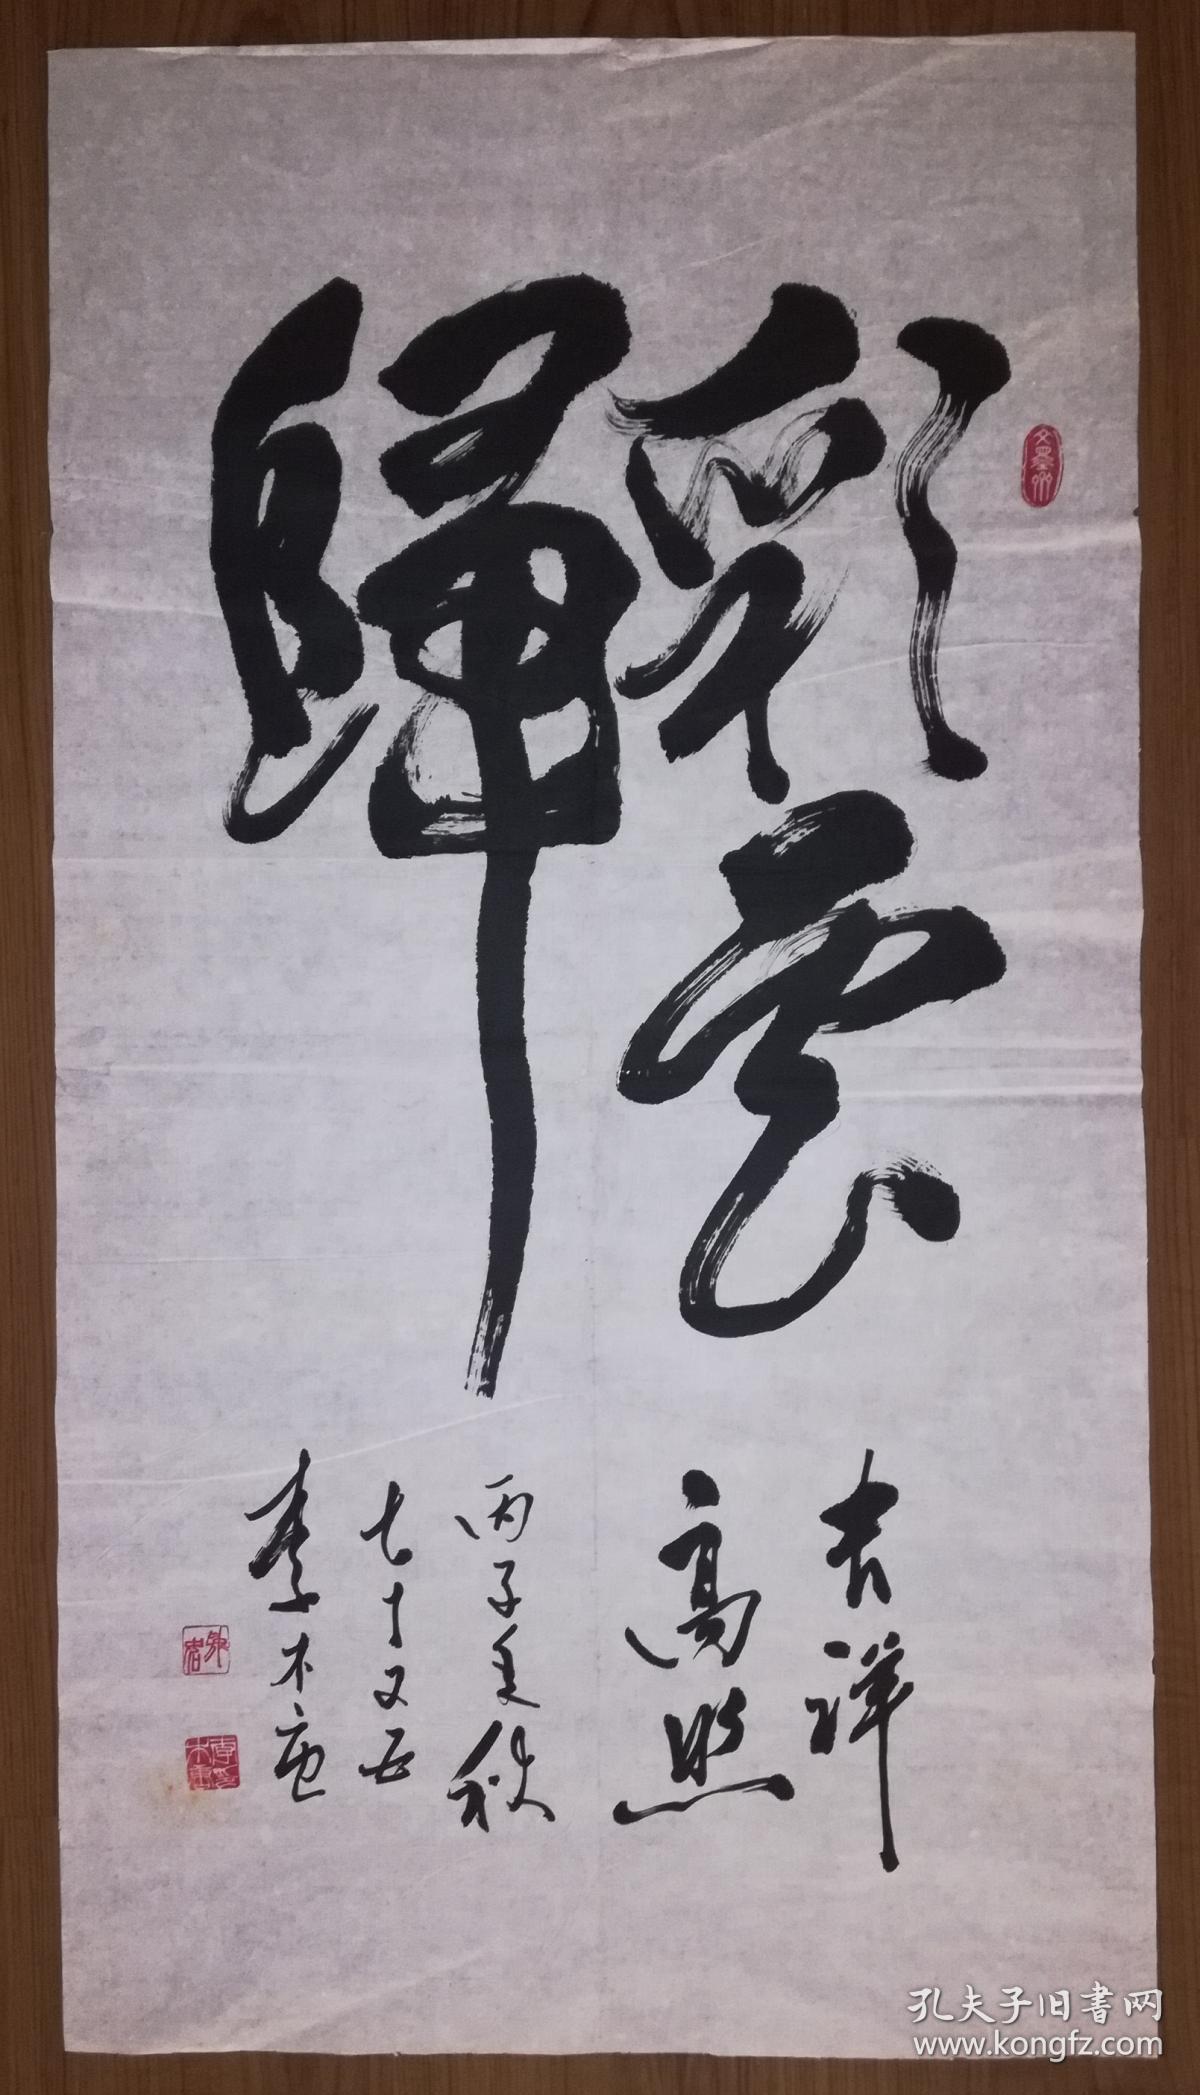 彩雲
歸
吉祥
高照
丙子年秋
七十又五
李木
孔夫子旧书网
www.kongfz.com